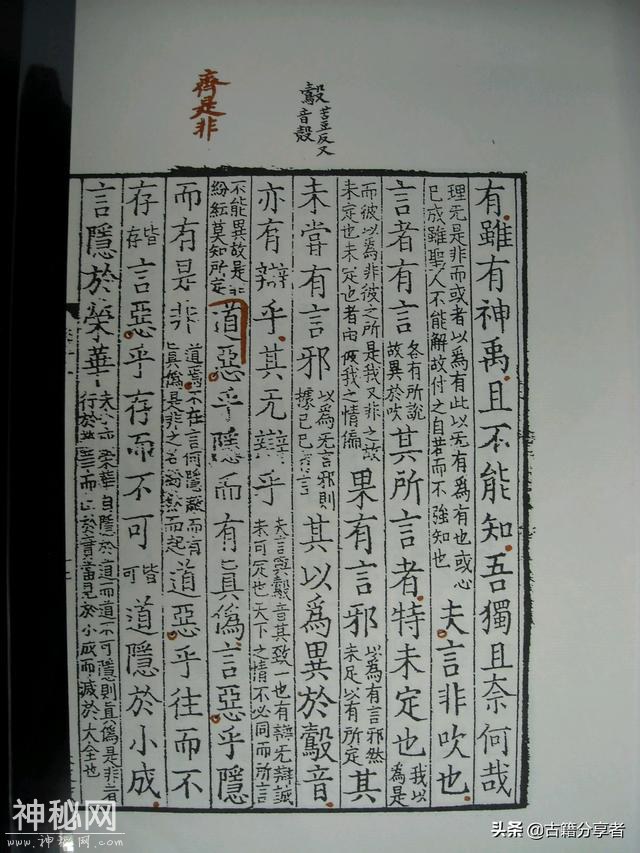 鷇苦豆反又
音殼
齊是非
有雖有神禹且不能知吾獨且奈何哉
理无是非而或者以為有此以无有為有也或心已成雖聖人不能解故付之自若而不強知也夫言非吹也
言者有言各有所說故異於吹其所言者特未定也我以為是
而彼以為非彼之所是我又非之故未定也未定也者由彼我之情偏果有言邪以為有言邪然未足以有所定其
未嘗有言邪以為无言邪則據已已有言其以為異於鷇音
亦有辯乎其无辯乎夫言與鷇音其致一也有辯无辯誠未可定也天下之情不必同而所言
不能異故是非紛紜莫知所定道惡乎隱而有真偽言惡乎隱
而有是非道焉不在言何隱蔽而有真偽是非之名紛然而起道惡乎往而不
存皆存言惡乎存而不可皆可道隱於小成
言隱於榮華夫小成榮華自隱於道而道不可隱則真偽是非者行於榮華而止於實當見於小成而滅於大全也
神秘网
www.神秘网.com
头条 @古籍分享者